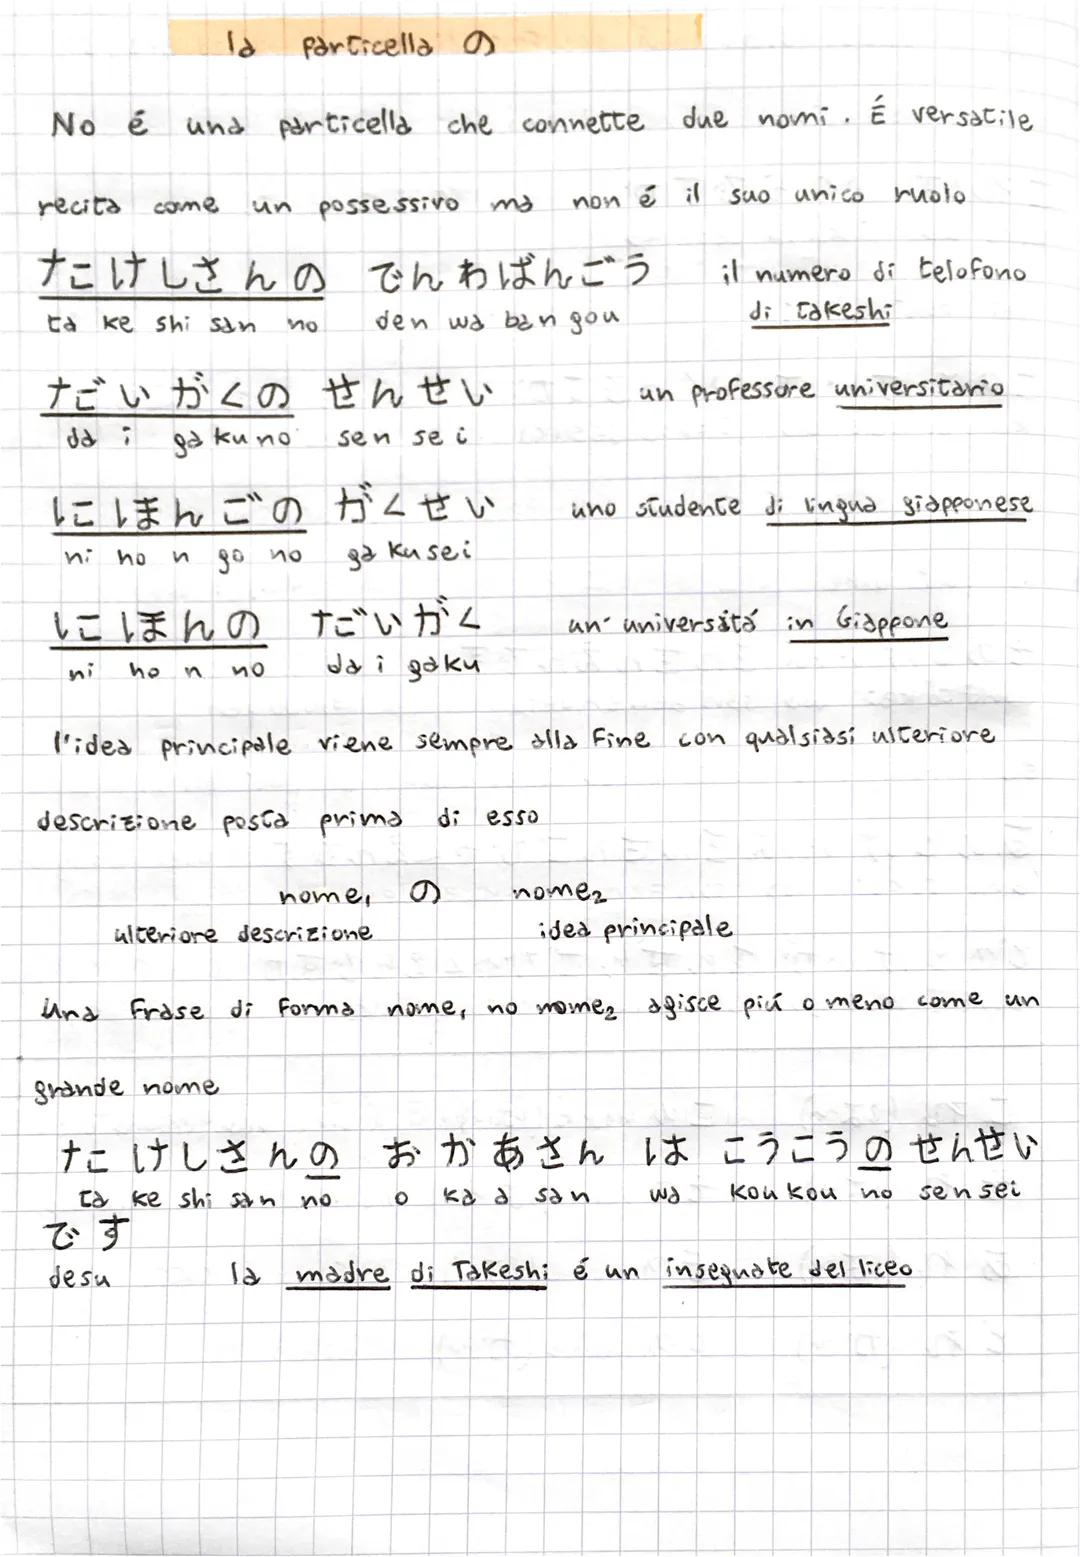 la particella の
No é una particella che connette due nomi. É versatile
recita come un possessivo ma non é il suo unico ruolo
たけしさんの でんわばんごう il numero di telofono
ta ke shi san no den wa ban gou di Takeshi
だいがくの せんせい un professore universitario
da i ga ku no sen se i
にほんごの がくせい uno studente di lingua giapponese
ni ho n go no ga ku sei
にほんの だいがく un' universitá in Giappone
ni ho n no da i gaku
l'idea principale viene sempre alla fine con qualsiasi ulteriore
descrizione posta prima di esso
nome₁ の nome₂
ulteriore descrizione idea principale
Una frase di forma nome₁ no nome₂ agisce piú o meno come un
grande nome
たけしさんの おかあさん は こうこうの せんせい
ta ke shi san no o ka a san wa kou kou no sen sei
です
desu la madre di Takeshi é un insegnate del liceo